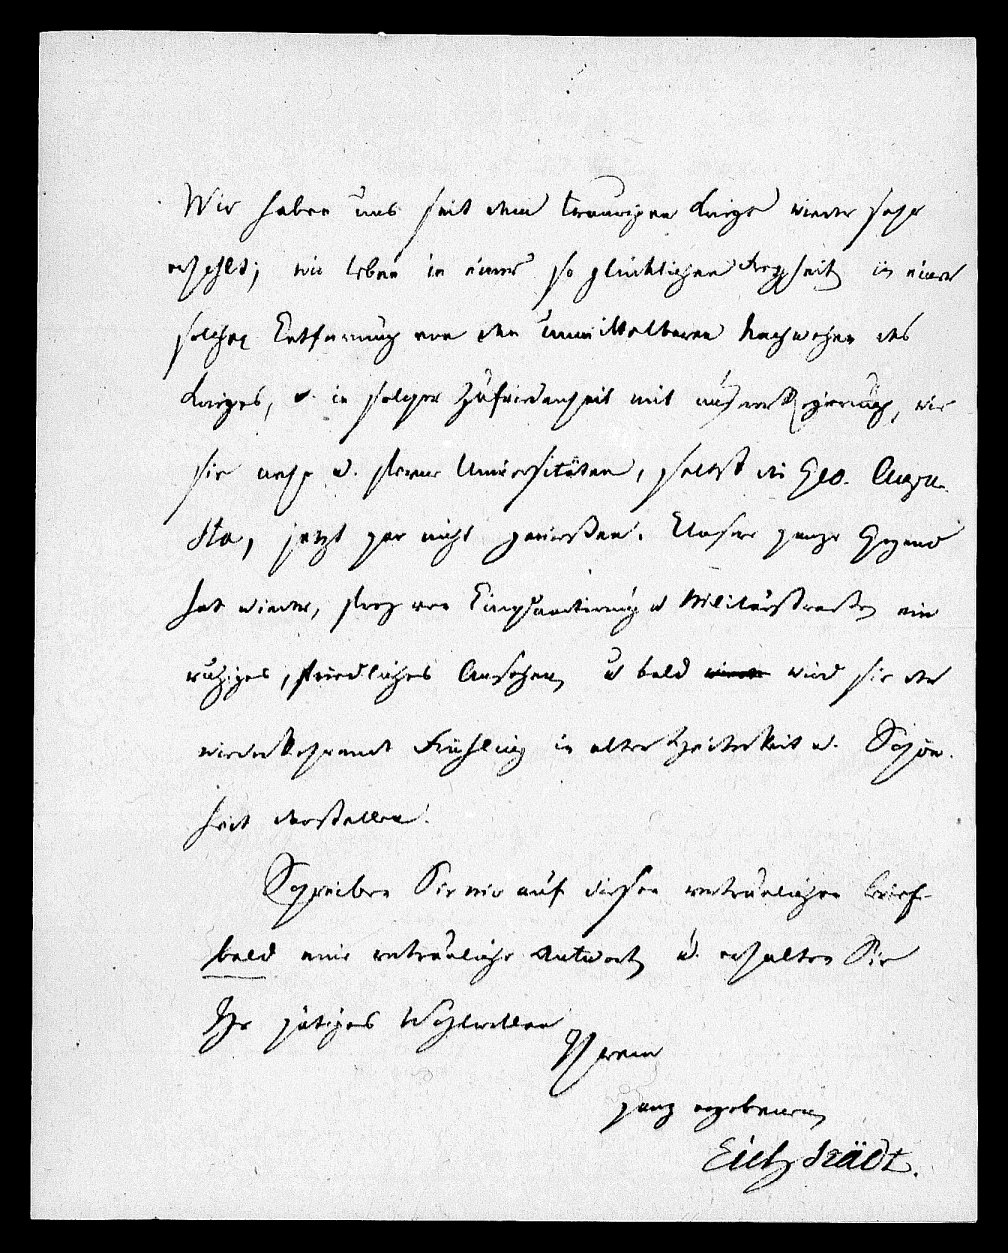 Wir haben uns seit dem traurigen Kriege wieder sehr
erhohlt; wir leben in einer so glücklichen Freyheit, in einer
solchen Entfernung von den unmittelbaren Nachwehen des
Krieges, u. in solcher Zufriedenheit mit unsrer Regierung, wie
sie nahe u. ferne Universitäten, selbst die Geo. Augu-
sta, jetzt gar nicht genießen. Unsere ganze Gegend
hat wieder, trotz von Einquartierung u Militärstraßen, ein
ruhiges, friedliches Ansehen, u bald wird sie der
wiederkehrende Frühling in alter Heiterkeit u. Schön-
heit darstellen.
Schreiben Sie mir auf diesen vertraulichen Brief
bald eine vertrauliche Antwort, u. erhalten Sie
Ihr gütiges Wohlwollen
Ihrem
ganz ergebenen
Eichstädt.